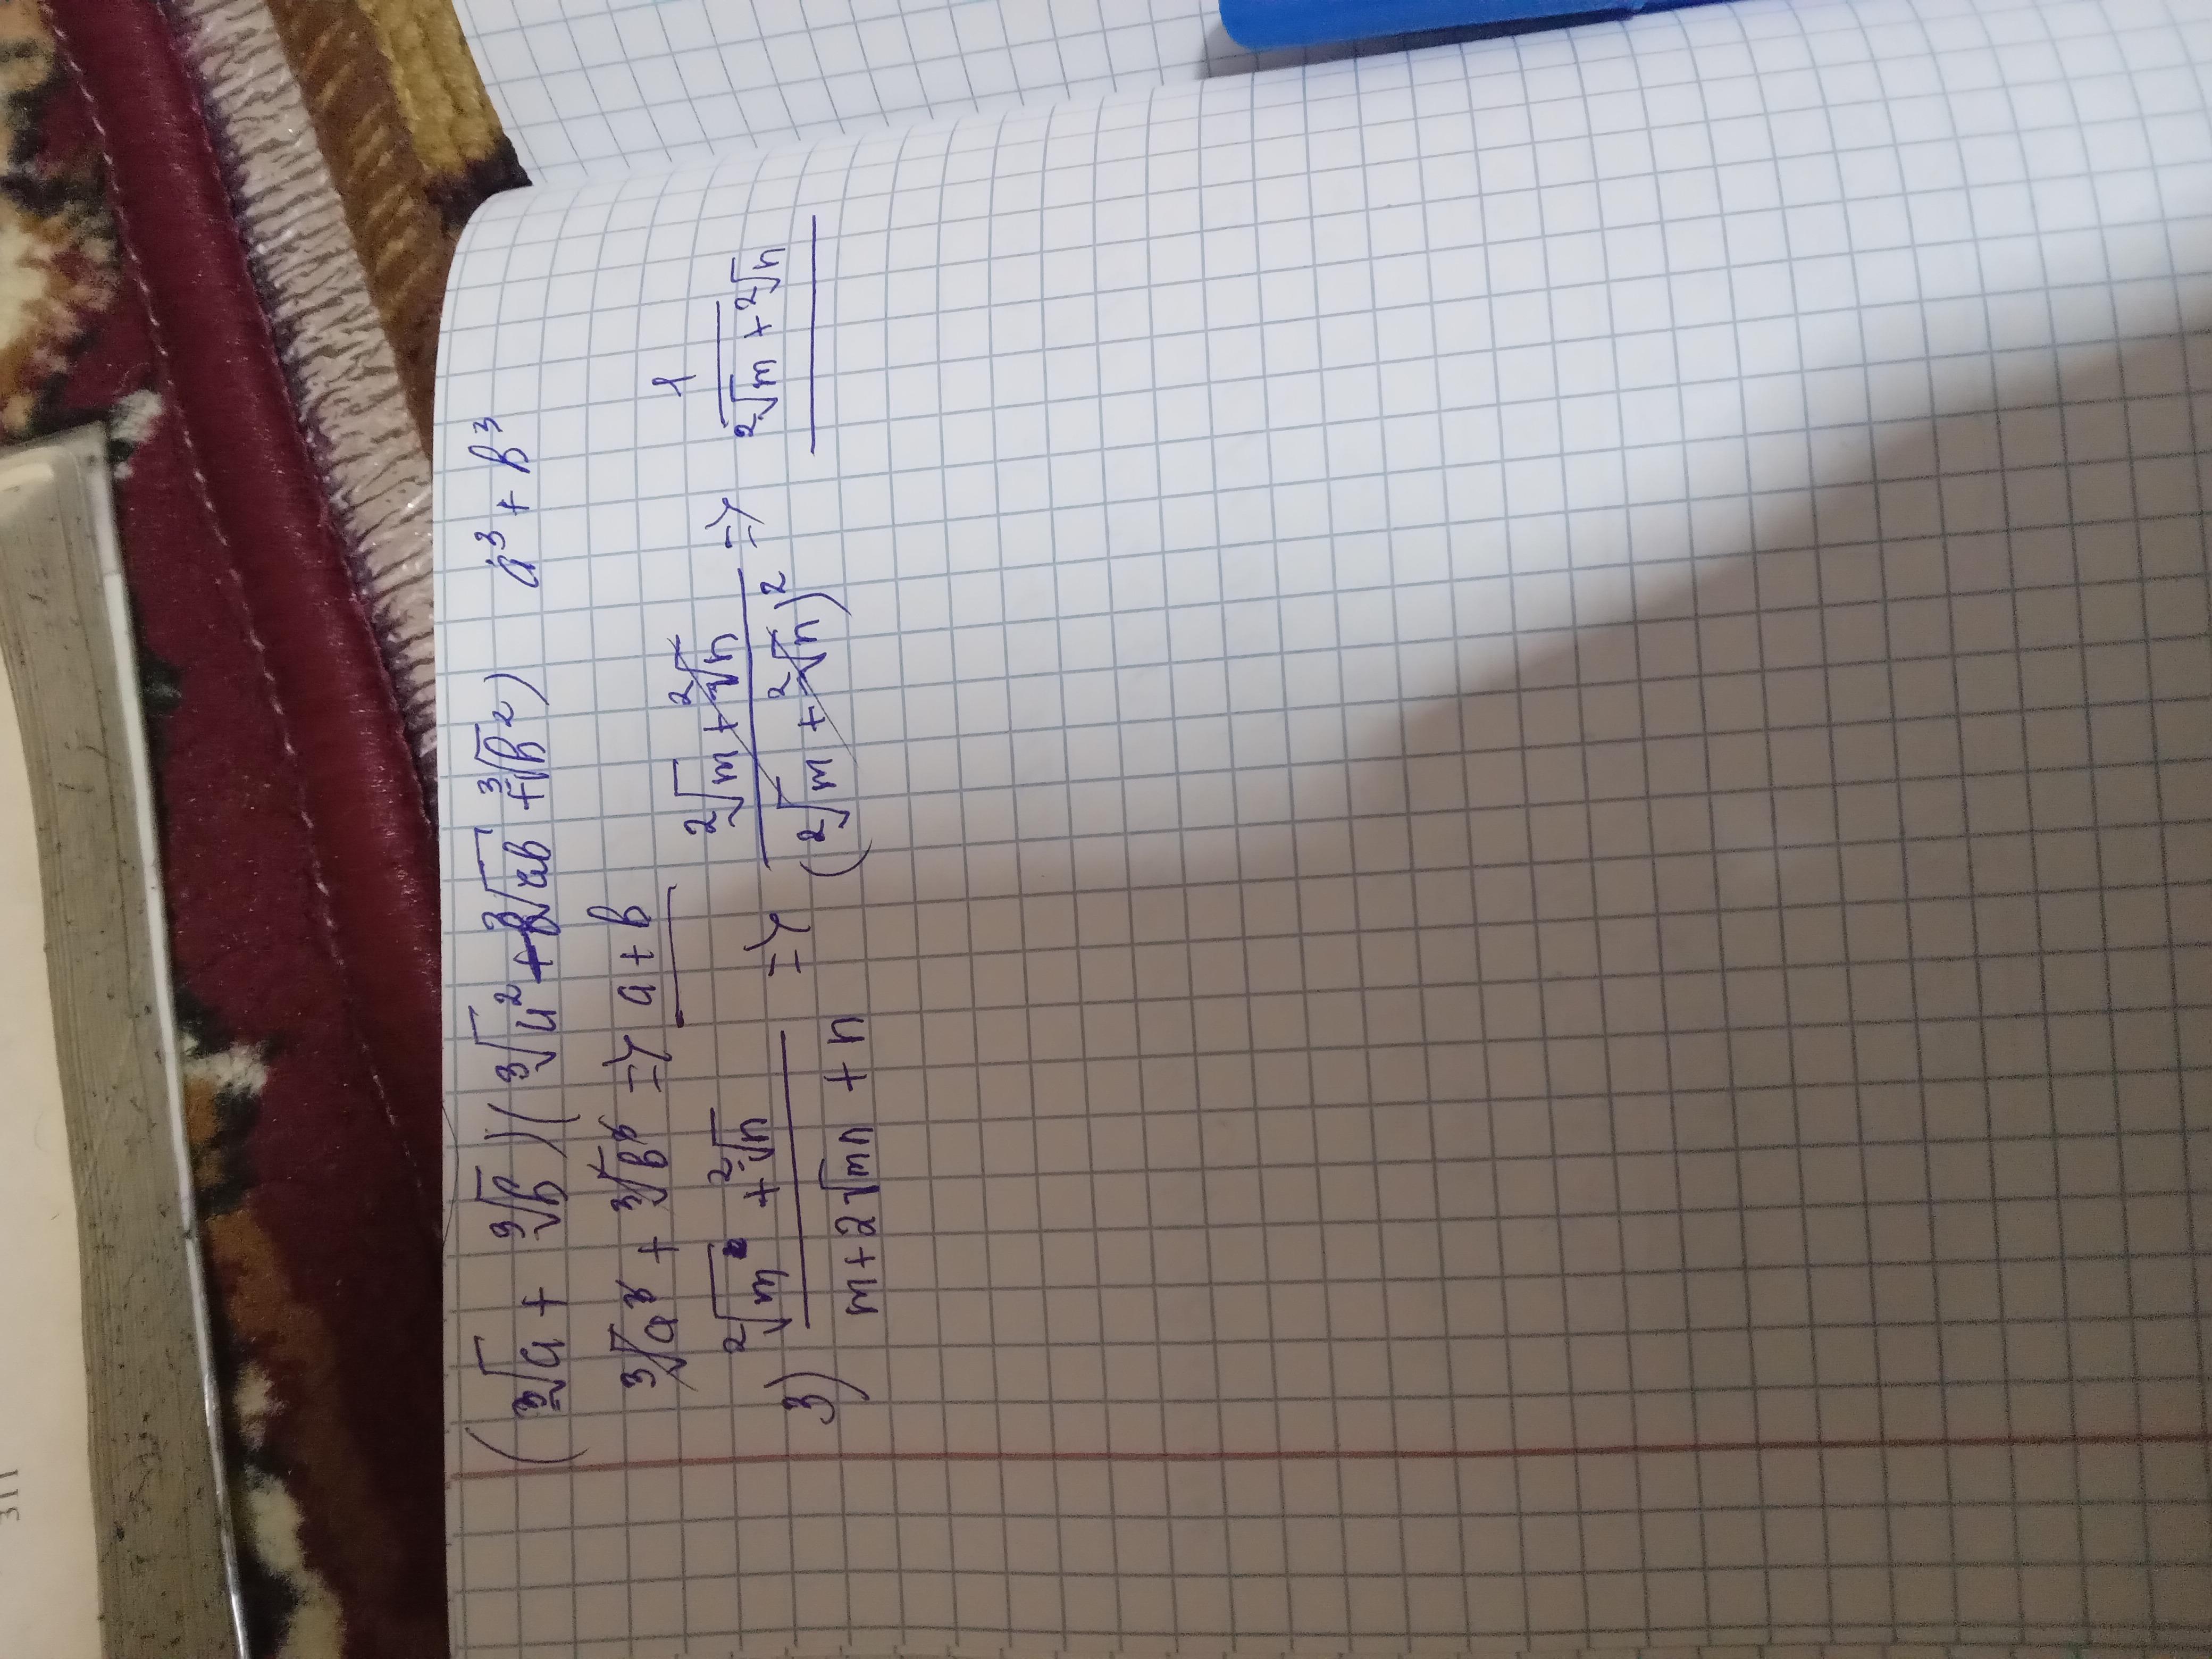 (³√a + ³√b)(³√a² + ³√ab + ³√b²) a³ + b³
³√a³ + ³√b³ => a + b
3) (²√m + ²√n) / (m + 2√mn + n) => (²√m + ²√n) / (²√m + ²√n)² => 1 / (²√m + ²√n)
311